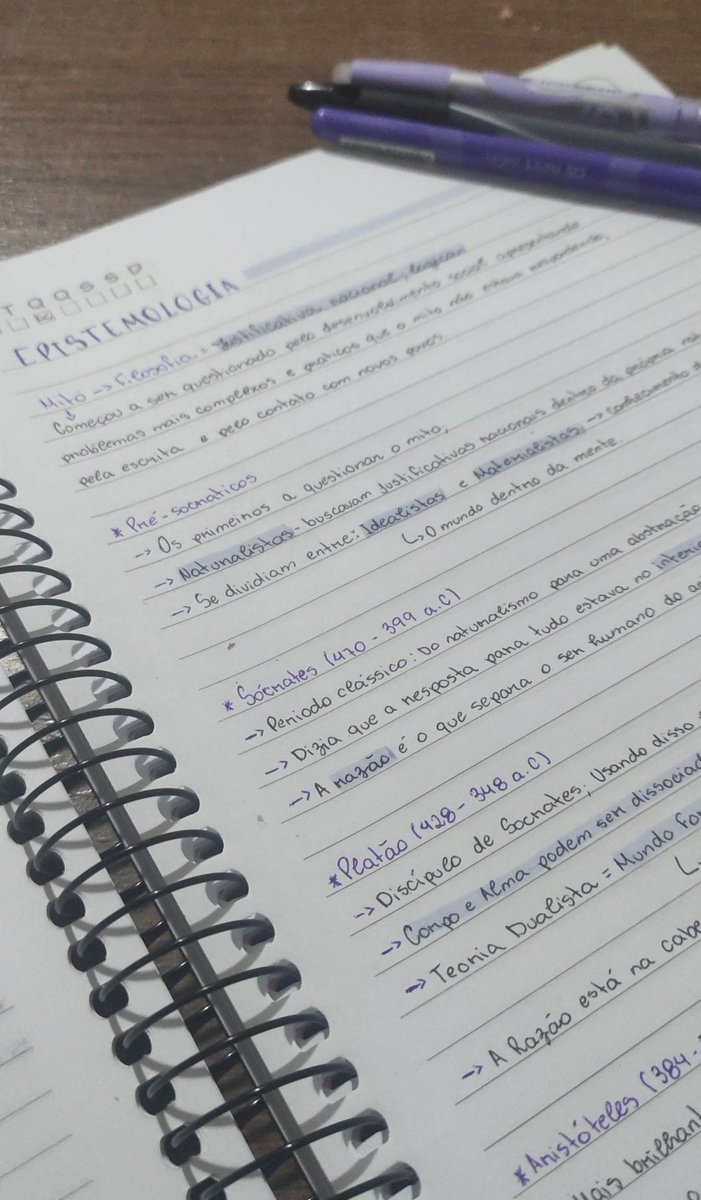 T Q Q S S D
EPISTEMOLOGIA
Mito -> Filosofia = Justificativa racional, lógica
Começou a ser questionado pelo desenvolvimento social apresentando
problemas mais complexos e práticos que o mito não estava resolvendo,
pela escrita e pelo contato com novos povos.
* Pré-socraticos
-> Os primeiros a questionar o mito,
-> Naturalistas - buscavam justificativas racionais dentro da própria
-> Se dividiam entre: Idealistas e Materialistas -> Conhecimento
↳ O mundo dentro da mente.
* Sócrates (470 - 399 a.C)
-> Período clássico: Do naturalismo para uma abstração
-> Dizia que a resposta para tudo estava no interi
-> A razão é o que separa o ser humano do an
* Platão (428 - 348 a.C)
-> Discípulo de Socrates; Usando disso
-> Corpo e Alma podem ser dissociad
-> Teoria Dualista = Mundo For
-> A Razão está na cabe
* Aristóteles (384 -
Mais brilhan